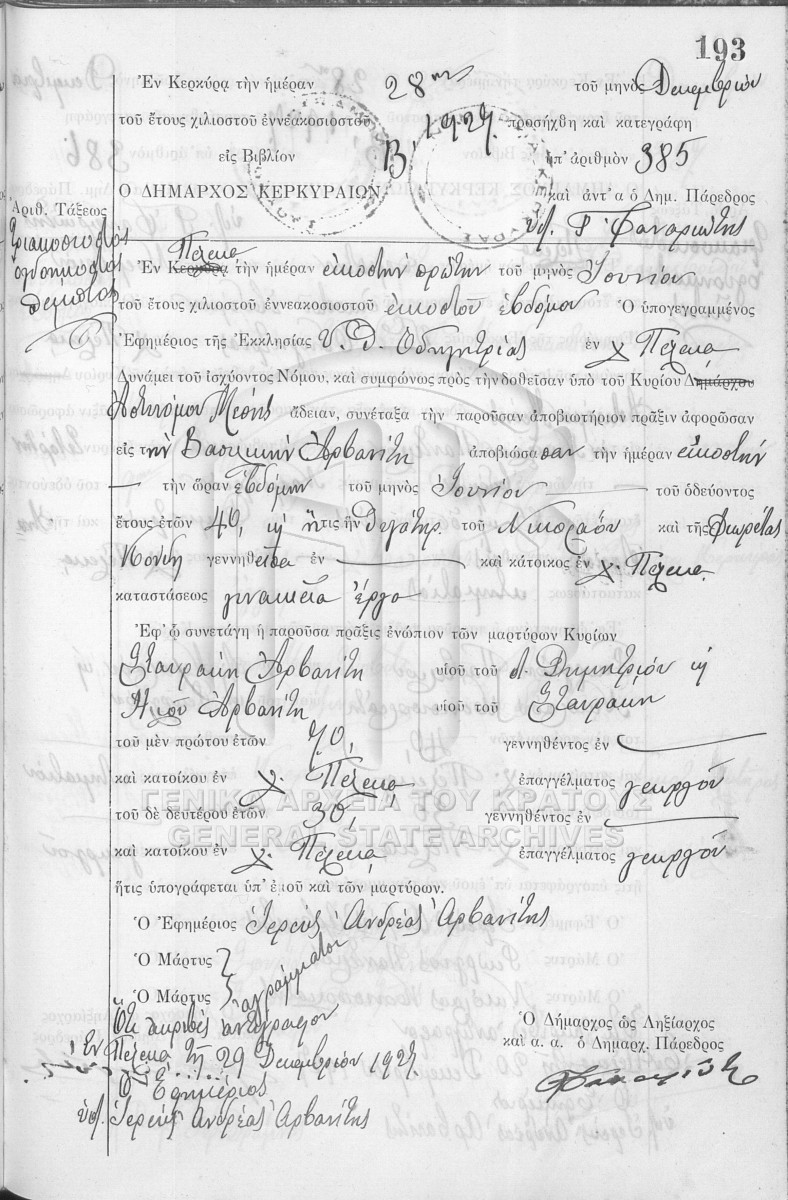 193
Ἐν Κερκύρᾳ τὴν ἡμέραν 28ην τοῦ μηνὸς Δεκεμβρίου
τοῦ ἔτους χιλιοστοῦ ἐννεακοσιοστοῦ 1927 προσήχθη καὶ κατεγράφη
εἰς Βιβλίον Β' ὑπ' ἀριθμὸν 385
Ο ΔΗΜΑΡΧΟΣ ΚΕΡΚΥΡΑΙΩΝ καὶ ἀντ' α ὁ Δημ. Πάρεδρος
Ἀριθ. Τάξεως
Τριακοσιοστὸς
ὀγδοηκοστὸς
πέμπτος
Φαναριώτης
Πέλεκα
Ἐν Κερκύρᾳ τὴν ἡμέραν εἰκοστὴν πρώτην τοῦ μηνὸς Ἰουνίου
τοῦ ἔτους χιλιοστοῦ ἐννεακοσιοστοῦ εἰκοστοῦ ἑβδόμου Ὁ ὑπογεγραμμένος
Ἐφημέριος τῆς Ἐκκλησίας Υ. Θ. Οδηγητρίας ἐν χ. Πέλεκα
Δυνάμει τοῦ ἰσχύοντος Νόμου, καὶ συμφώνως πρὸς τὴν δοθεῖσαν ὑπὸ τοῦ Κυρίου Δημάρχου
Ἀστυνόμου Μέσης ἄδειαν, συνέταξα τὴν παροῦσαν ἀποβιωτήριον πρᾶξιν ἀφορῶσαν
εἰς τὴν Βασιλικὴν Ἀρβανίτη ἀποβιώσασαν τὴν ἡμέραν εἰκοστὴν
— τὴν ὥραν ἑβδόμην τοῦ μηνὸς Ἰουνίου — τοῦ ὁδεύοντος
ἔτους ἐτῶν 40, ἥτις ἦν θυγάτηρ τοῦ Νικολάου καὶ τῆς Φιωρέτας
γεννηθεῖσα ἐν — καὶ κάτοικος ἐν χ. Πέλεκα
καταστάσεως γυναικεῖα ἔργα
Ἐφ' ᾧ συνετάγη ἡ παροῦσα πρᾶξις ἐνώπιον τῶν μαρτύρων Κυρίων
Σταυράκη Ἀρβανίτη υἱοῦ τοῦ Δημητρίου
Ἀρβανίτη υἱοῦ τοῦ Σταυράκη
τοῦ μὲν πρώτου ἐτῶν 70, γεννηθέντος ἐν —
καὶ κατοίκου ἐν χ. Πέλεκα ἐπαγγέλματος γεωργοῦ
ΓΕΝΙΚΑ ΑΡΧΕΙΑ ΤΟΥ ΚΡΑΤΟΥΣ
τοῦ δὲ δευτέρου ἐτῶν 30, γεννηθέντος ἐν —
GENERAL STATE ARCHIVES
καὶ κατοίκου ἐν χ. Πέλεκα ἐπαγγέλματος γεωργοῦ
ἥτις ὑπογράφεται ὑπ' ἐμοῦ καὶ τῶν μαρτύρων.
Ὁ Ἐφημέριος Ἱερεὺς Ἀνδρέας Ἀρβανίτης
Ὁ Μάρτυς
Ὁ Μάρτυς ἀγράμματοι
Ὅτι ἀκριβὲς ἀντίγραφον
Ἐν Πέλεκα τῇ 29 Δεκεμβρίου 1927
Ὁ Ἐφημέριος
ὑπ. Ἱερεὺς Ἀνδρέας Ἀρβανίτης
Ὁ Δήμαρχος ὡς Ληξίαρχος
καὶ α. α. ὁ Δημαρχ. Πάρεδρος